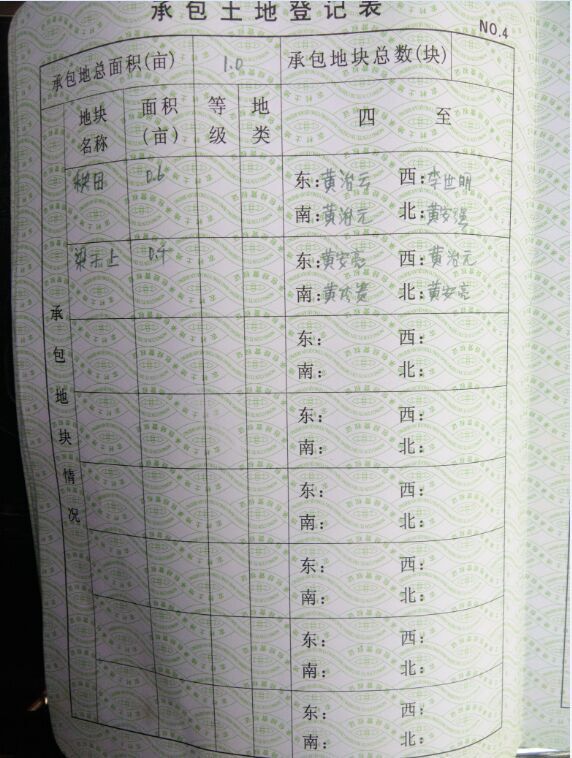 承包土地登记表
NO.4
承包地总面积(亩) 1.0 承包地块总数(块)
地块名称 面积(亩) 等级 地类 四至
承包地块情况
秧田 0.6 东:黄治云 西:李世明
南:黄治元 北:黄安强
梁示上 0.4 东:黄安亮 西:黄治元
南:黄 贵 北:黄安亮
东: 西:
南: 北:
东: 西:
南: 北:
东: 西:
南: 北:
东: 西:
南: 北:
东: 西:
南: 北:
东: 西:
南: 北: